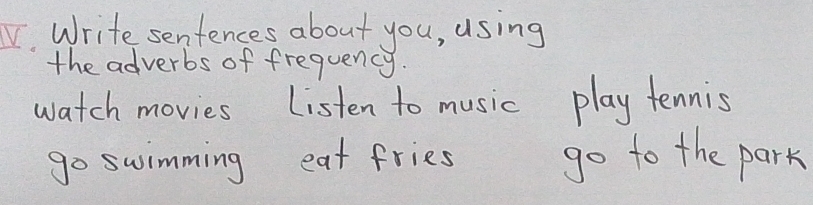 IV. Write sentences about you, using
the adverbs of frequency.
watch movies listen to music play tennis
go swimming eat fries go to the park